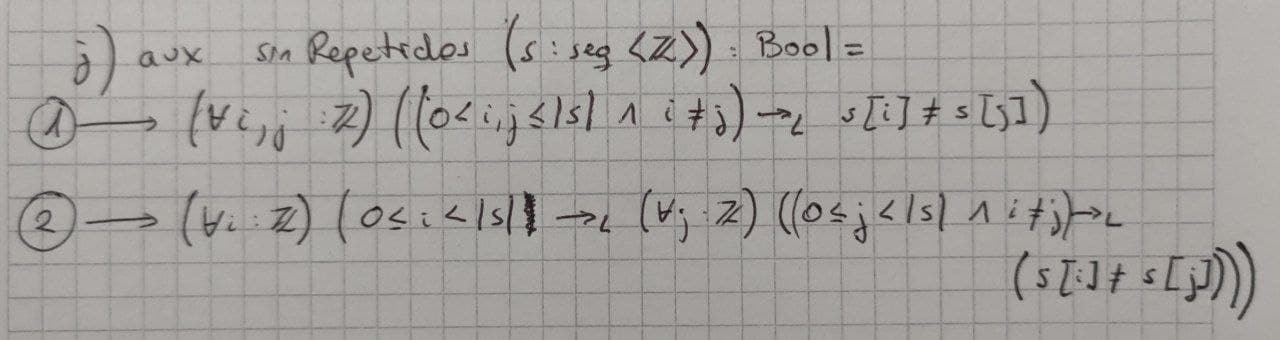 j) aux sin Repetidos (s : seq <ℤ>) : Bool =
① → (∀ i, j : ℤ) ((0 < i, j ≤ |s| ∧ i ≠ j) →ʟ s[i] ≠ s[j])
② → (∀ i : ℤ) (0 ≤ i < |s| →ʟ (∀ j : ℤ) ((0 ≤ j < |s| ∧ i ≠ j) →ʟ
(s[i] ≠ s[j])))